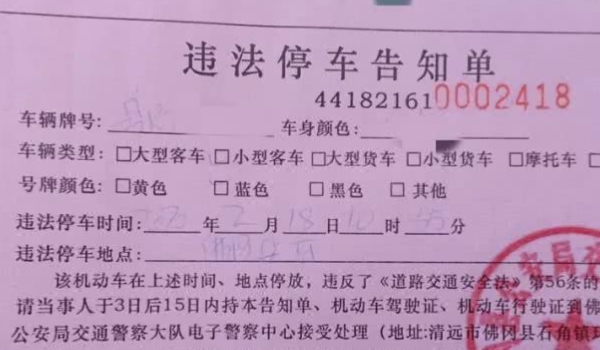 违法停车告知单
441821610002418
车辆牌号: 车身颜色:
车辆类型: □大型客车 □小型客车 □大型货车 □小型货车 □摩托车
号牌颜色: □黄色 □蓝色 □黑色 □其他
违法停车时间: 年 2 月 18 日 10 时 55 分
违法停车地点:
该机动车在上述时间、地点停放,违反了《道路交通安全法》第56条的
请当事人于3日后15日内持本告知单、机动车驾驶证、机动车行驶证到佛
公安局交通警察大队电子警察中心接受处理(地址:清远市佛冈县石角镇